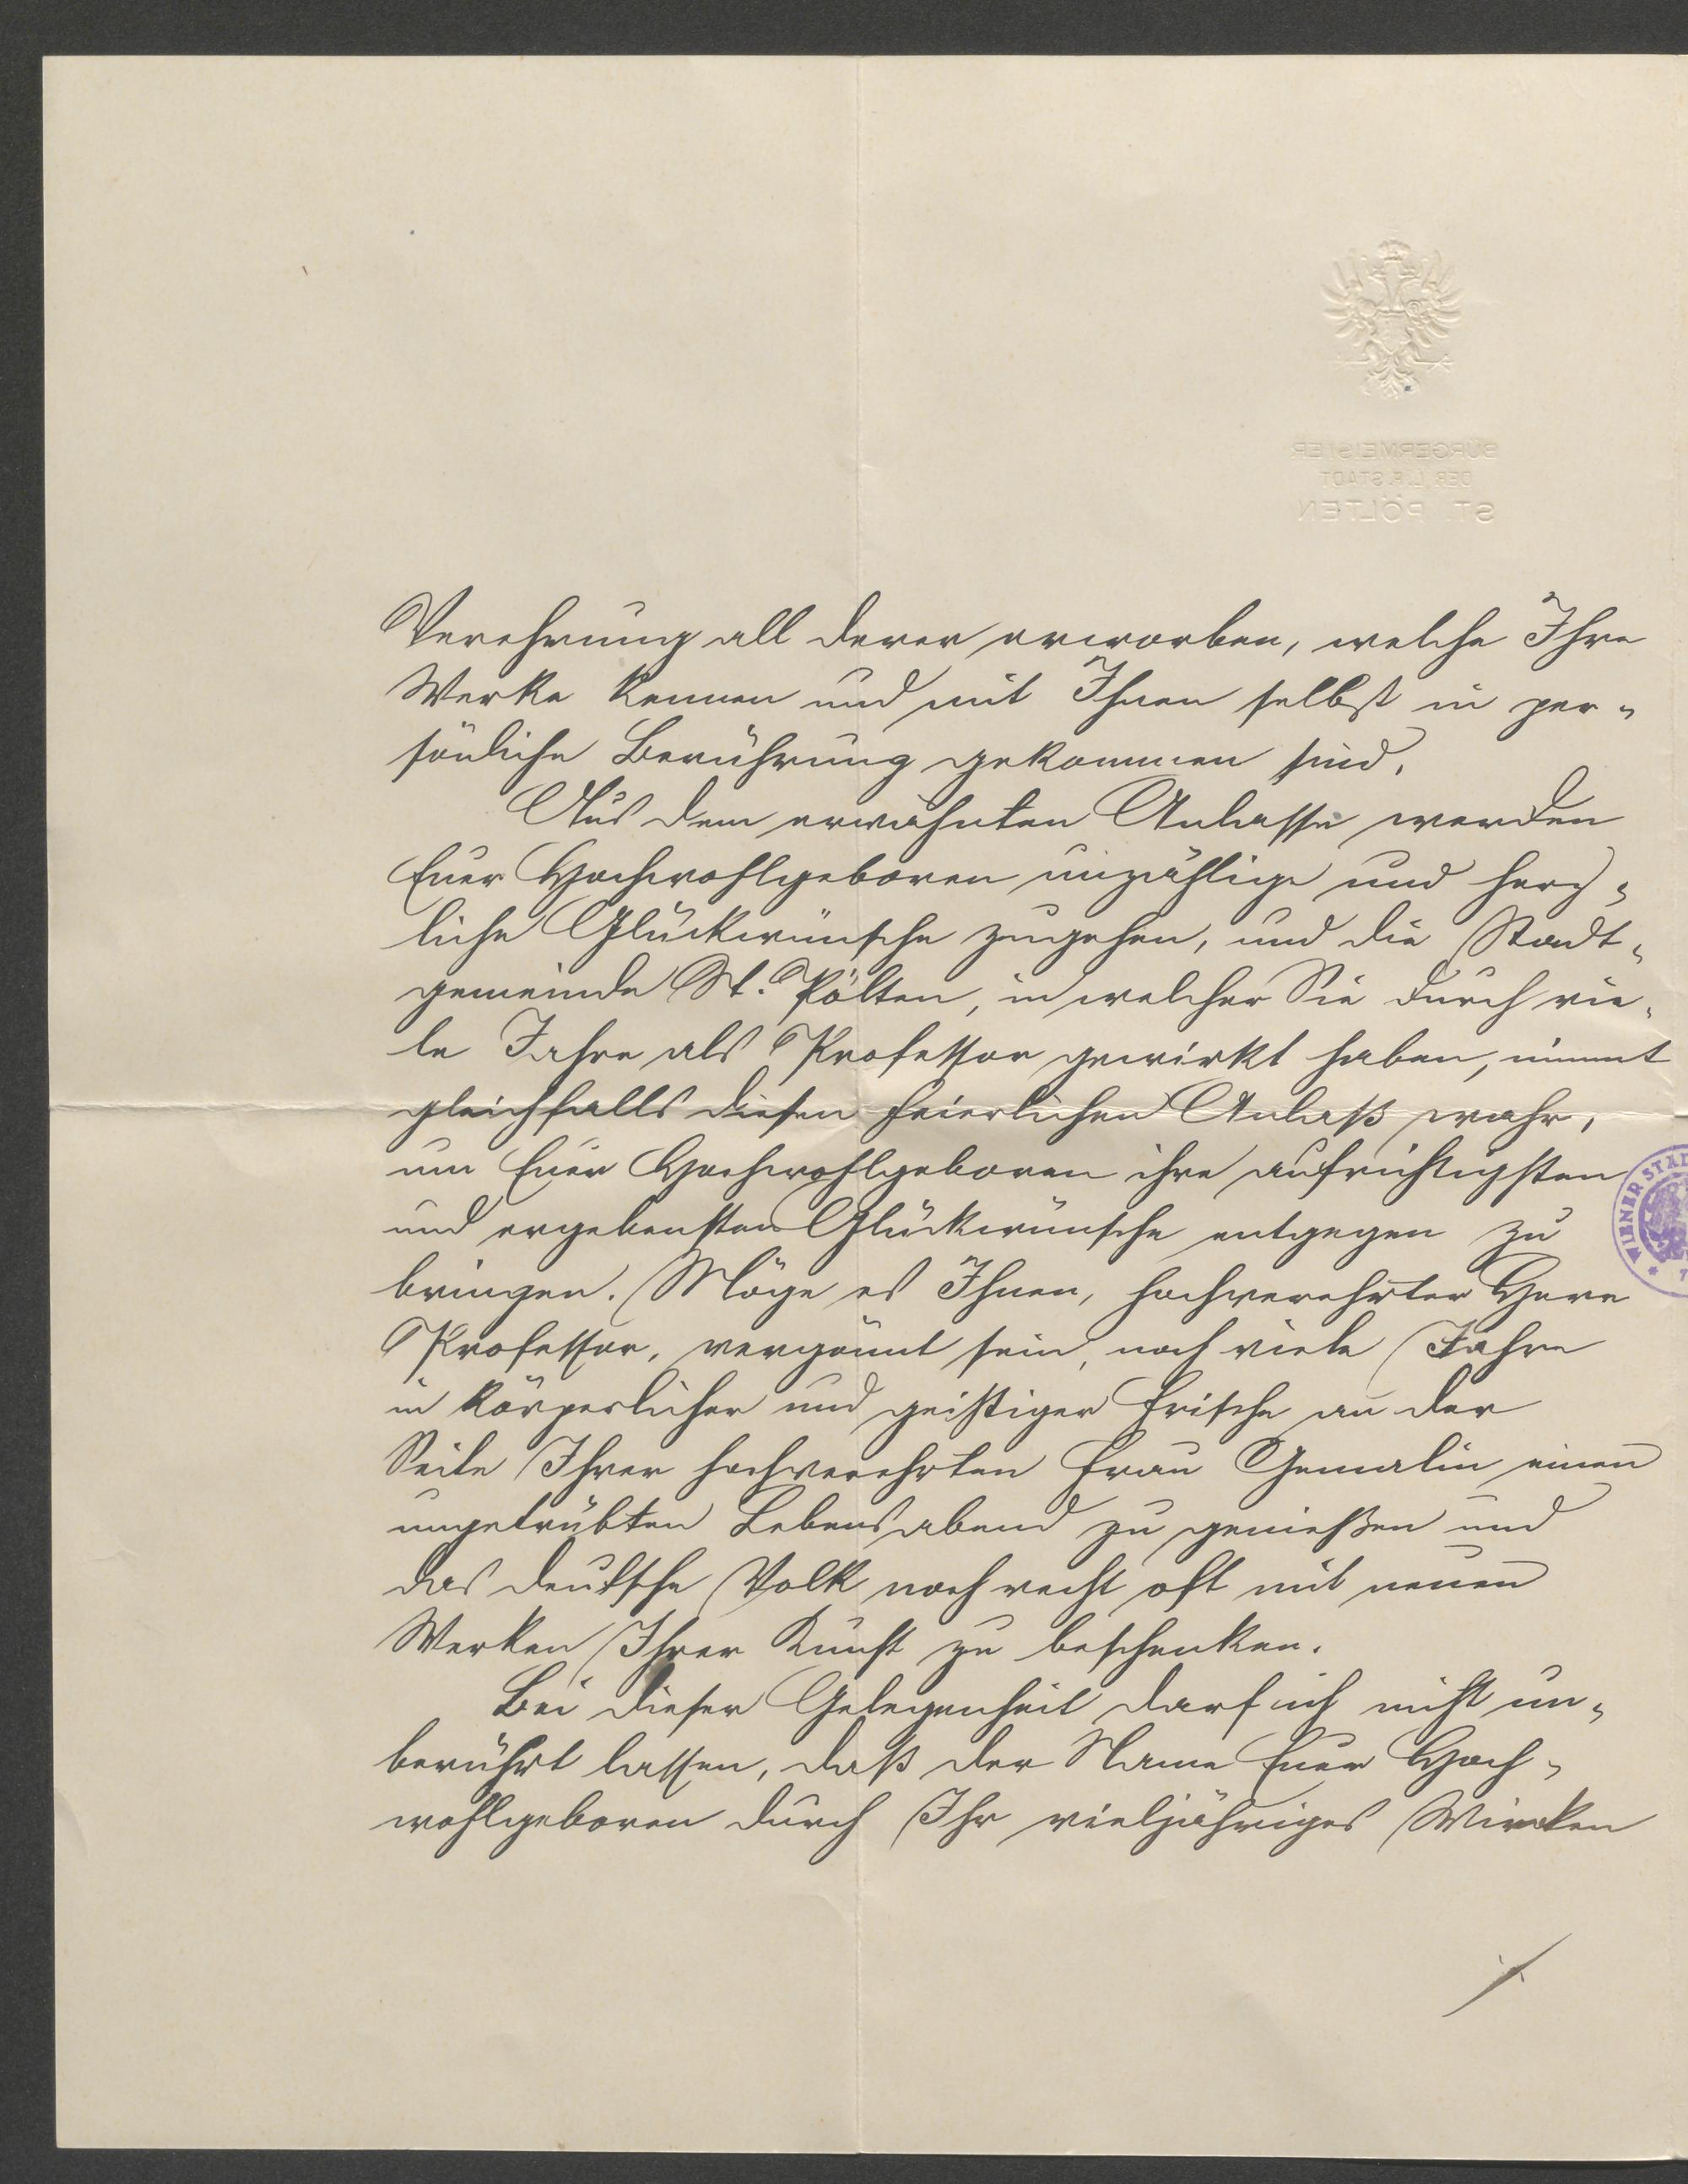 BÜRGERMEISTER
DER L.F. STADT
ST. PÖLTEN
Verehrung all derer erworben, welche Ihre
Werke kennen und mit Ihnen selbst in per-
sönliche Berührung gekommen sind.
Aus dem erwähnten Anlasse werden
Euer Hochwohlgeboren unzählige und herz-
liche Glückwünsche zugehen, und die Stadt-
gemeinde St. Pölten, in welcher Sie durch vie-
le Jahre als Professor gewirkt haben, nimmt
gleichfalls diesen feierlichen Anlaß wahr,
um Euer Hochwohlgeboren ihre aufrichtigsten
und ergebensten Glückwünsche entgegen zu
bringen. Möge es Ihnen, hochverehrter Herr
Professor, vergönnt sein, noch viele Jahre
in körperlicher und geistiger Frische an der
Seite Ihrer hochverehrten Frau Gemalin einen
ungetrübten Lebensabend zu genießen und
das deutsche Volk noch recht oft mit neuen
Werken Ihrer Kunst zu beschenken.
Bei dieser Gelegenheit darf ich nicht un-
berührt lassen, daß der Name Euer Hoch-
wohlgeboren durch Ihr vieljähriges Wirken
WIENER STÄD